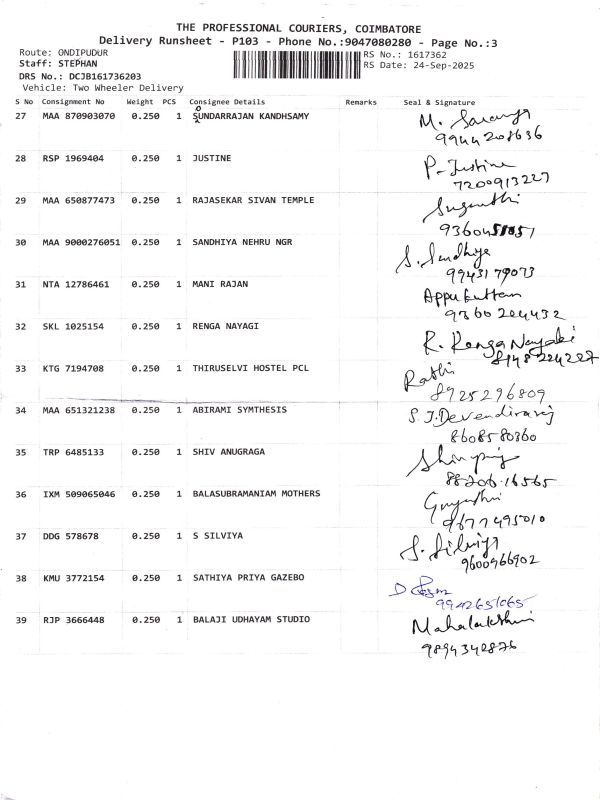 THE PROFESSIONAL COURIERS, COIMBATORE
Delivery Runsheet - P103 - Phone No.:9047080280 - Page No.:3
Route: ONDIPUDUR RS No.: 1617362
Staff: STEPHAN RS Date: 24-Sep-2025
DRS No.: DCJB161736203
Vehicle: Two Wheeler Delivery
S No Consignment No Weight PCS Consignee Details Remarks Seal & Signature
27 MAA 870903070 0.250 1 SUNDARRAJAN KANDHSAMY M. Saranya
9944208636
28 RSP 1969404 0.250 1 JUSTINE P-Justine
7200913227
29 MAA 650877473 0.250 1 RAJASEKAR SIVAN TEMPLE Suganthi
30 MAA 9000276051 0.250 1 SANDHIYA NEHRU NGR S. Sandhiya
9943179073
31 NTA 12786461 0.250 1 MANI RAJAN Appukuttam
9360224432
32 SKL 1025154 0.250 1 RENGA NAYAGI R. Renga Nayaki
8148224227
33 KTG 7194708 0.250 1 THIRUSELVI HOSTEL PCL Rathi
8925296809
34 MAA 651321238 0.250 1 ABIRAMI SYMTHESIS S.J.Devendiraraj
8608580360
35 TRP 6485133 0.250 1 SHIV ANUGRAGA
88206 16565
36 IXM 509065046 0.250 1 BALASUBRAMANIAM MOTHERS
9677495010
37 DDG 578678 0.250 1 S SILVIYA S. Silviya
9600966902
38 KMU 3772154 0.250 1 SATHIYA PRIYA GAZEBO
9942651065
39 RJP 3666448 0.250 1 BALAJI UDHAYAM STUDIO Mahalakshmi
9894342876